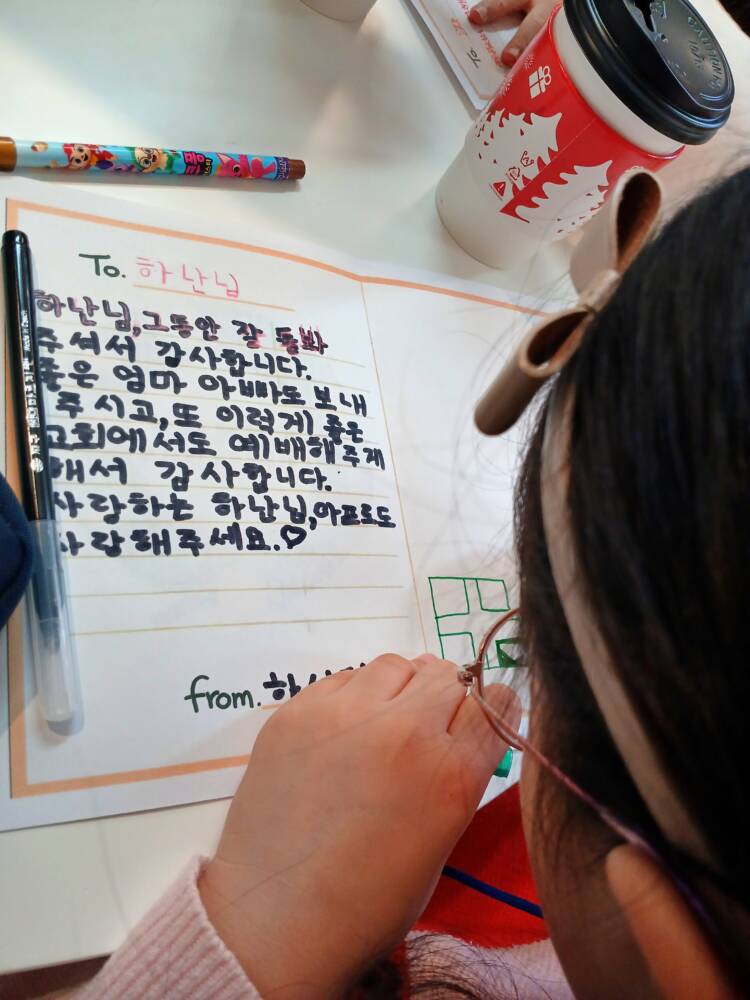 To. 하난님
하난님,그동안 잘 돌봐
주셔서 감사합니다.
좋은 엄마 아빠도 보내
주시고,또 이렇게 좋은
교회에서도 예배해주게
해서 감사합니다.
사랑하는 하난님,아프로도
사랑해주세요.♡
from.
To.
CAUTION
HOT